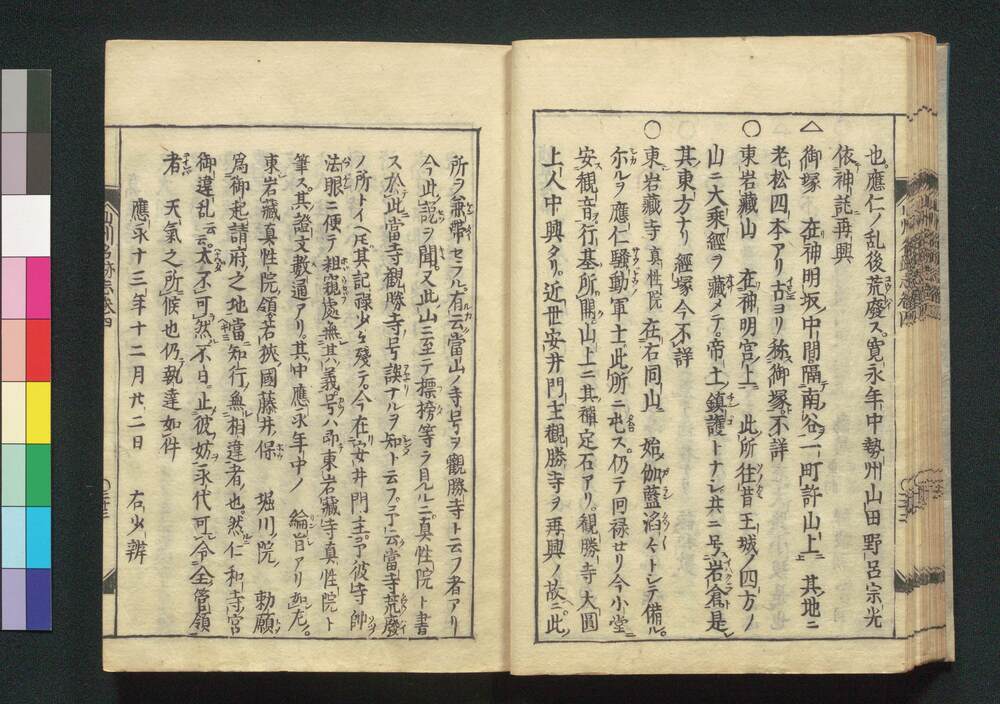 也應仁ノ乱後荒廢ス。寛永年中勢州山田野呂宗光
依神託再興
△御塚 在神明坂中間隔南谷一町許山上 其地ニ
老松四本アリ古ヨリ称御塚不詳
○東岩藏山 在神明宮上 此所往昔王城ノ四方ノ
山ニ大乘經ヲ藏メテ帝土鎮護トナシ共ニ号岩倉是
其東方ナリ經塚今不詳
○東岩藏寺 真性院 在右同山 始伽藍滔々トシテ備ル。
尓ルヲ應仁騒動軍士此所ニ屯ス。仍テ回禄セリ今小堂
安観音行基所開山上ニ其禪定石アリ。觀勝寺大圓
上人中興タリ。近世安井門主觀勝寺ヲ再興ノ故ニ此
所ヲ兼帶セラル。有云當山ノ寺号ヲ觀勝寺ト云フ者アリ
今此説ヲ聞。又此山ニ至テ標榜等ヲ見ルニ真性院ト書
ス於此當寺觀勝寺号誤ナルヲ知ト云フ。予云當寺荒廢
ノ所トイヘ𪜈其記禄少々殘テ今在安井門主予彼寺帥
法眼ニ便テ粗窺處無其義号ハ即東岩藏寺真性院ト
筆ス。其證文數通アリ。其中應永年中ノ 綸旨アリ如左。
東岩藏真性院領若狹國藤井保 堀川院 勅願
爲御起請府之地當知行無相違者也。然仁和寺宮
御違乱云云太不可然不日止彼妨永代可令全管領
者 天氣之所候也仍執達如件
應永十三年十二月廿二日 右少辨
山州名跡志卷四